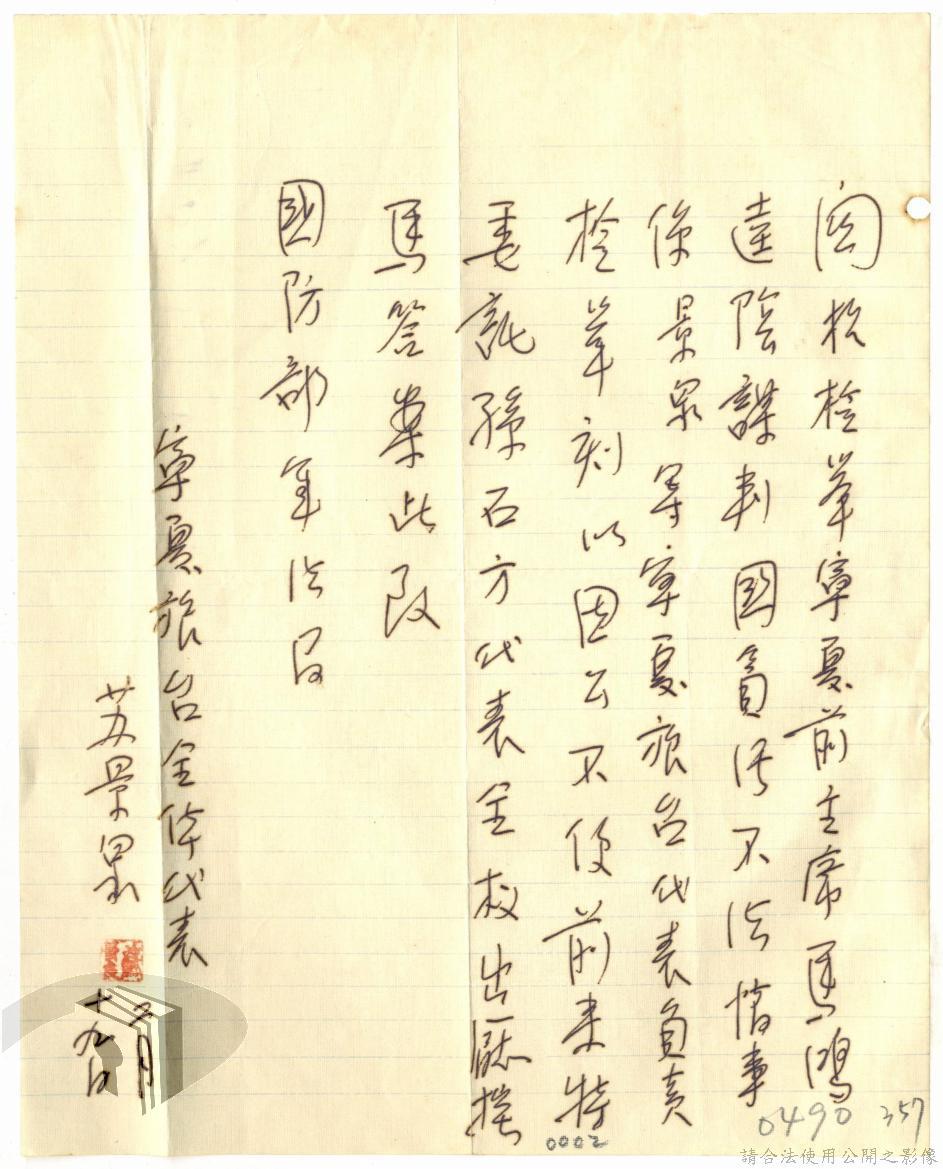 關於檢舉寧夏前主席馬鴻
逵陰謀判國貪污不法情事
係景泉等寧夏旅台代表負責
檢舉刻以因公不便前來特
委託孫石方代表全权出厰撰
馬答案此致
國防部軍法局
寧夏旅台全体代表
苏景泉
二月
十九日
0490 357
0002
請合法使用公開之影像